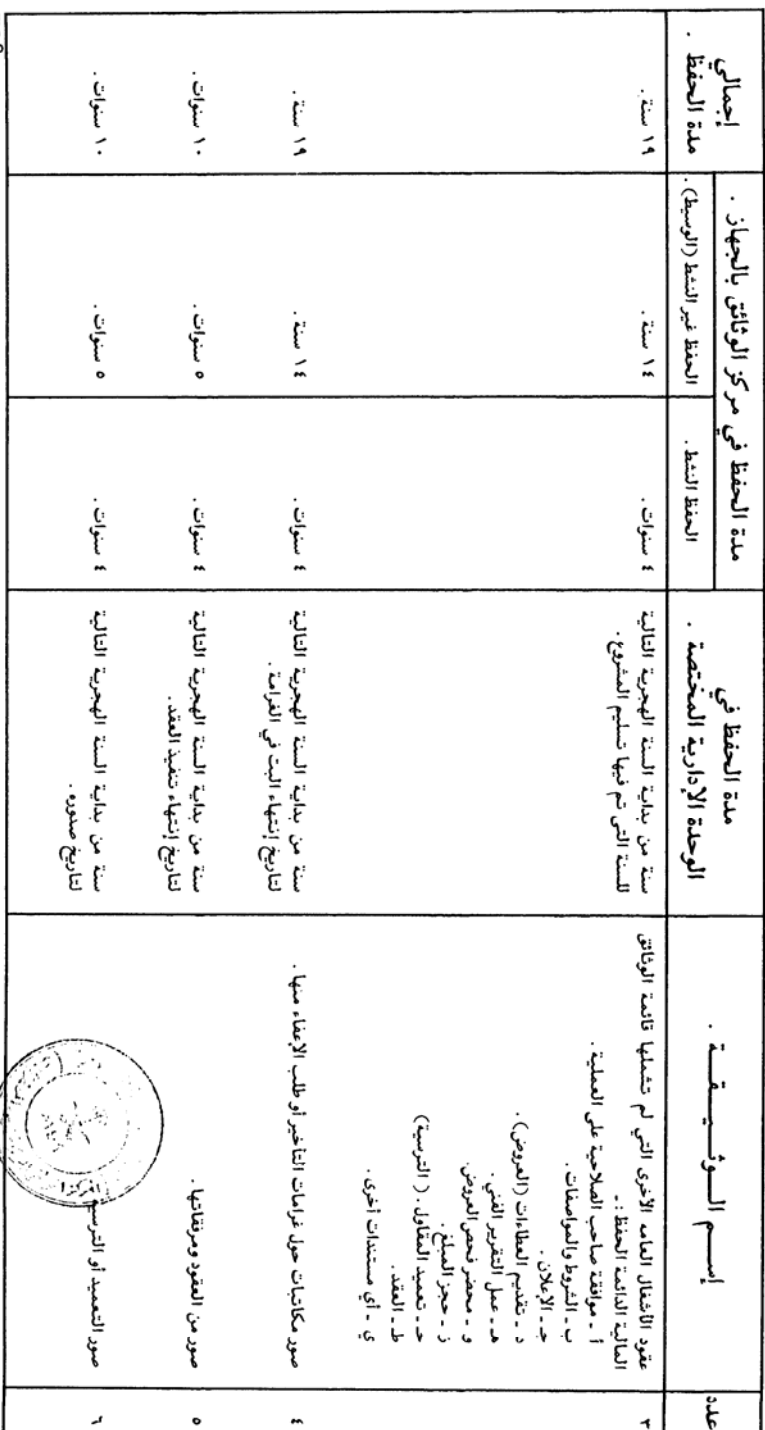 عدد
إسـم الـوثـيـقـة .
مدة الحفظ في
الوحدة الإدارية المختصة .
مدة الحفظ في مركز الوثائق بالجهاز .
الحفظ النشط .
الحفظ غير النشط (الوسيط) .
إجمالي
مدة الحفظ .
٣
عقود الأشغال العامه الأخرى التي لم تشملها قائمة الوثائق
المالية الدائمة الحفظ :ـ
أ ـ موافقة صاحب الصلاحية على العملية .
ب ـ الشروط والمواصفات .
جـ ـ الإعلان .
د ـ تقديم العطاءات (العروض) .
هـ ـ عمل التقرير الفني .
و ـ محضر فحص العروض .
ز ـ حجز المبلغ .
حـ ـ تعميد المقاول . ( الترسية )
ط ـ العقد .
ي ـ أي مستندات أخرى .
سنة من بداية السنة الهجرية التالية
للسنة التي تم فيها تسليم المشروع .
٤ سنوات .
١٤ سنة .
١٩ سنة .
٤
صور مكاتبات حول غرامات التأخير أو طلب الإعفاء منها .
سنة من بداية السنة الهجرية التالية
لتاريخ إنتهاء البت في الغرامة .
٤ سنوات .
١٤ سنة .
١٩ سنة .
٥
صور من العقود ومرفقاتها .
سنة من بداية السنة الهجرية التالية
لتاريخ إنتهاء تنفيذ العقد .
٤ سنوات .
٥ سنوات .
١٠ سنوات .
٦
صور التعميد أو
سنة من بداية السنة الهجرية التالية
لتاريخ صدوره .
٤ سنوات .
٥ سنوات .
١٠ سنوات .